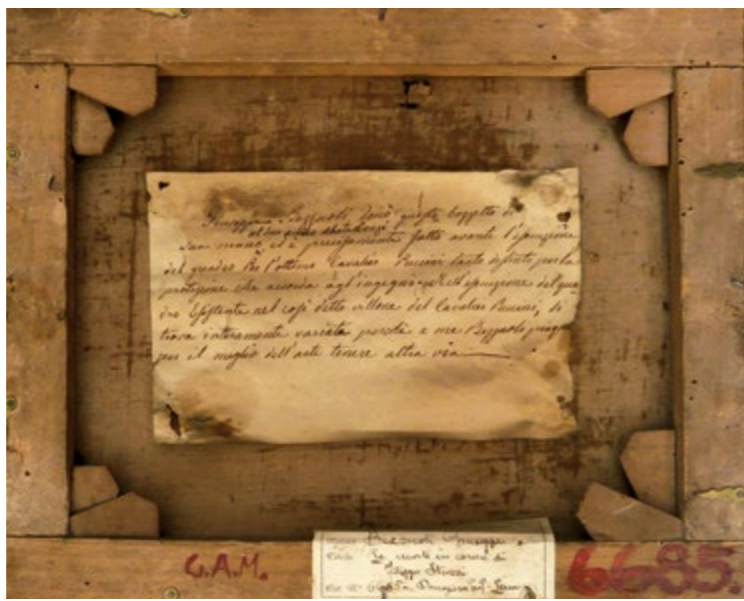 Giuseppe Bezzuoli donò questo bozzetto di
sua mano, ed è precisamente fatto avanti l'esecuzione
del quadro per l'ottimo Cavalier Puccini tanto distinto per la
protezione che accorda agl'ingegni. Nell'esecuzione del qua
dro Esistente nel così detto villone del Cavalier Puccini, si
trova interamente variata perché a me Bezzuoli piacque
per il meglio dell'arte tenere altra via
G.A.M.
Bezzuoli Giuseppe
La morte in carcere di
Filippo Strozzi
6685.